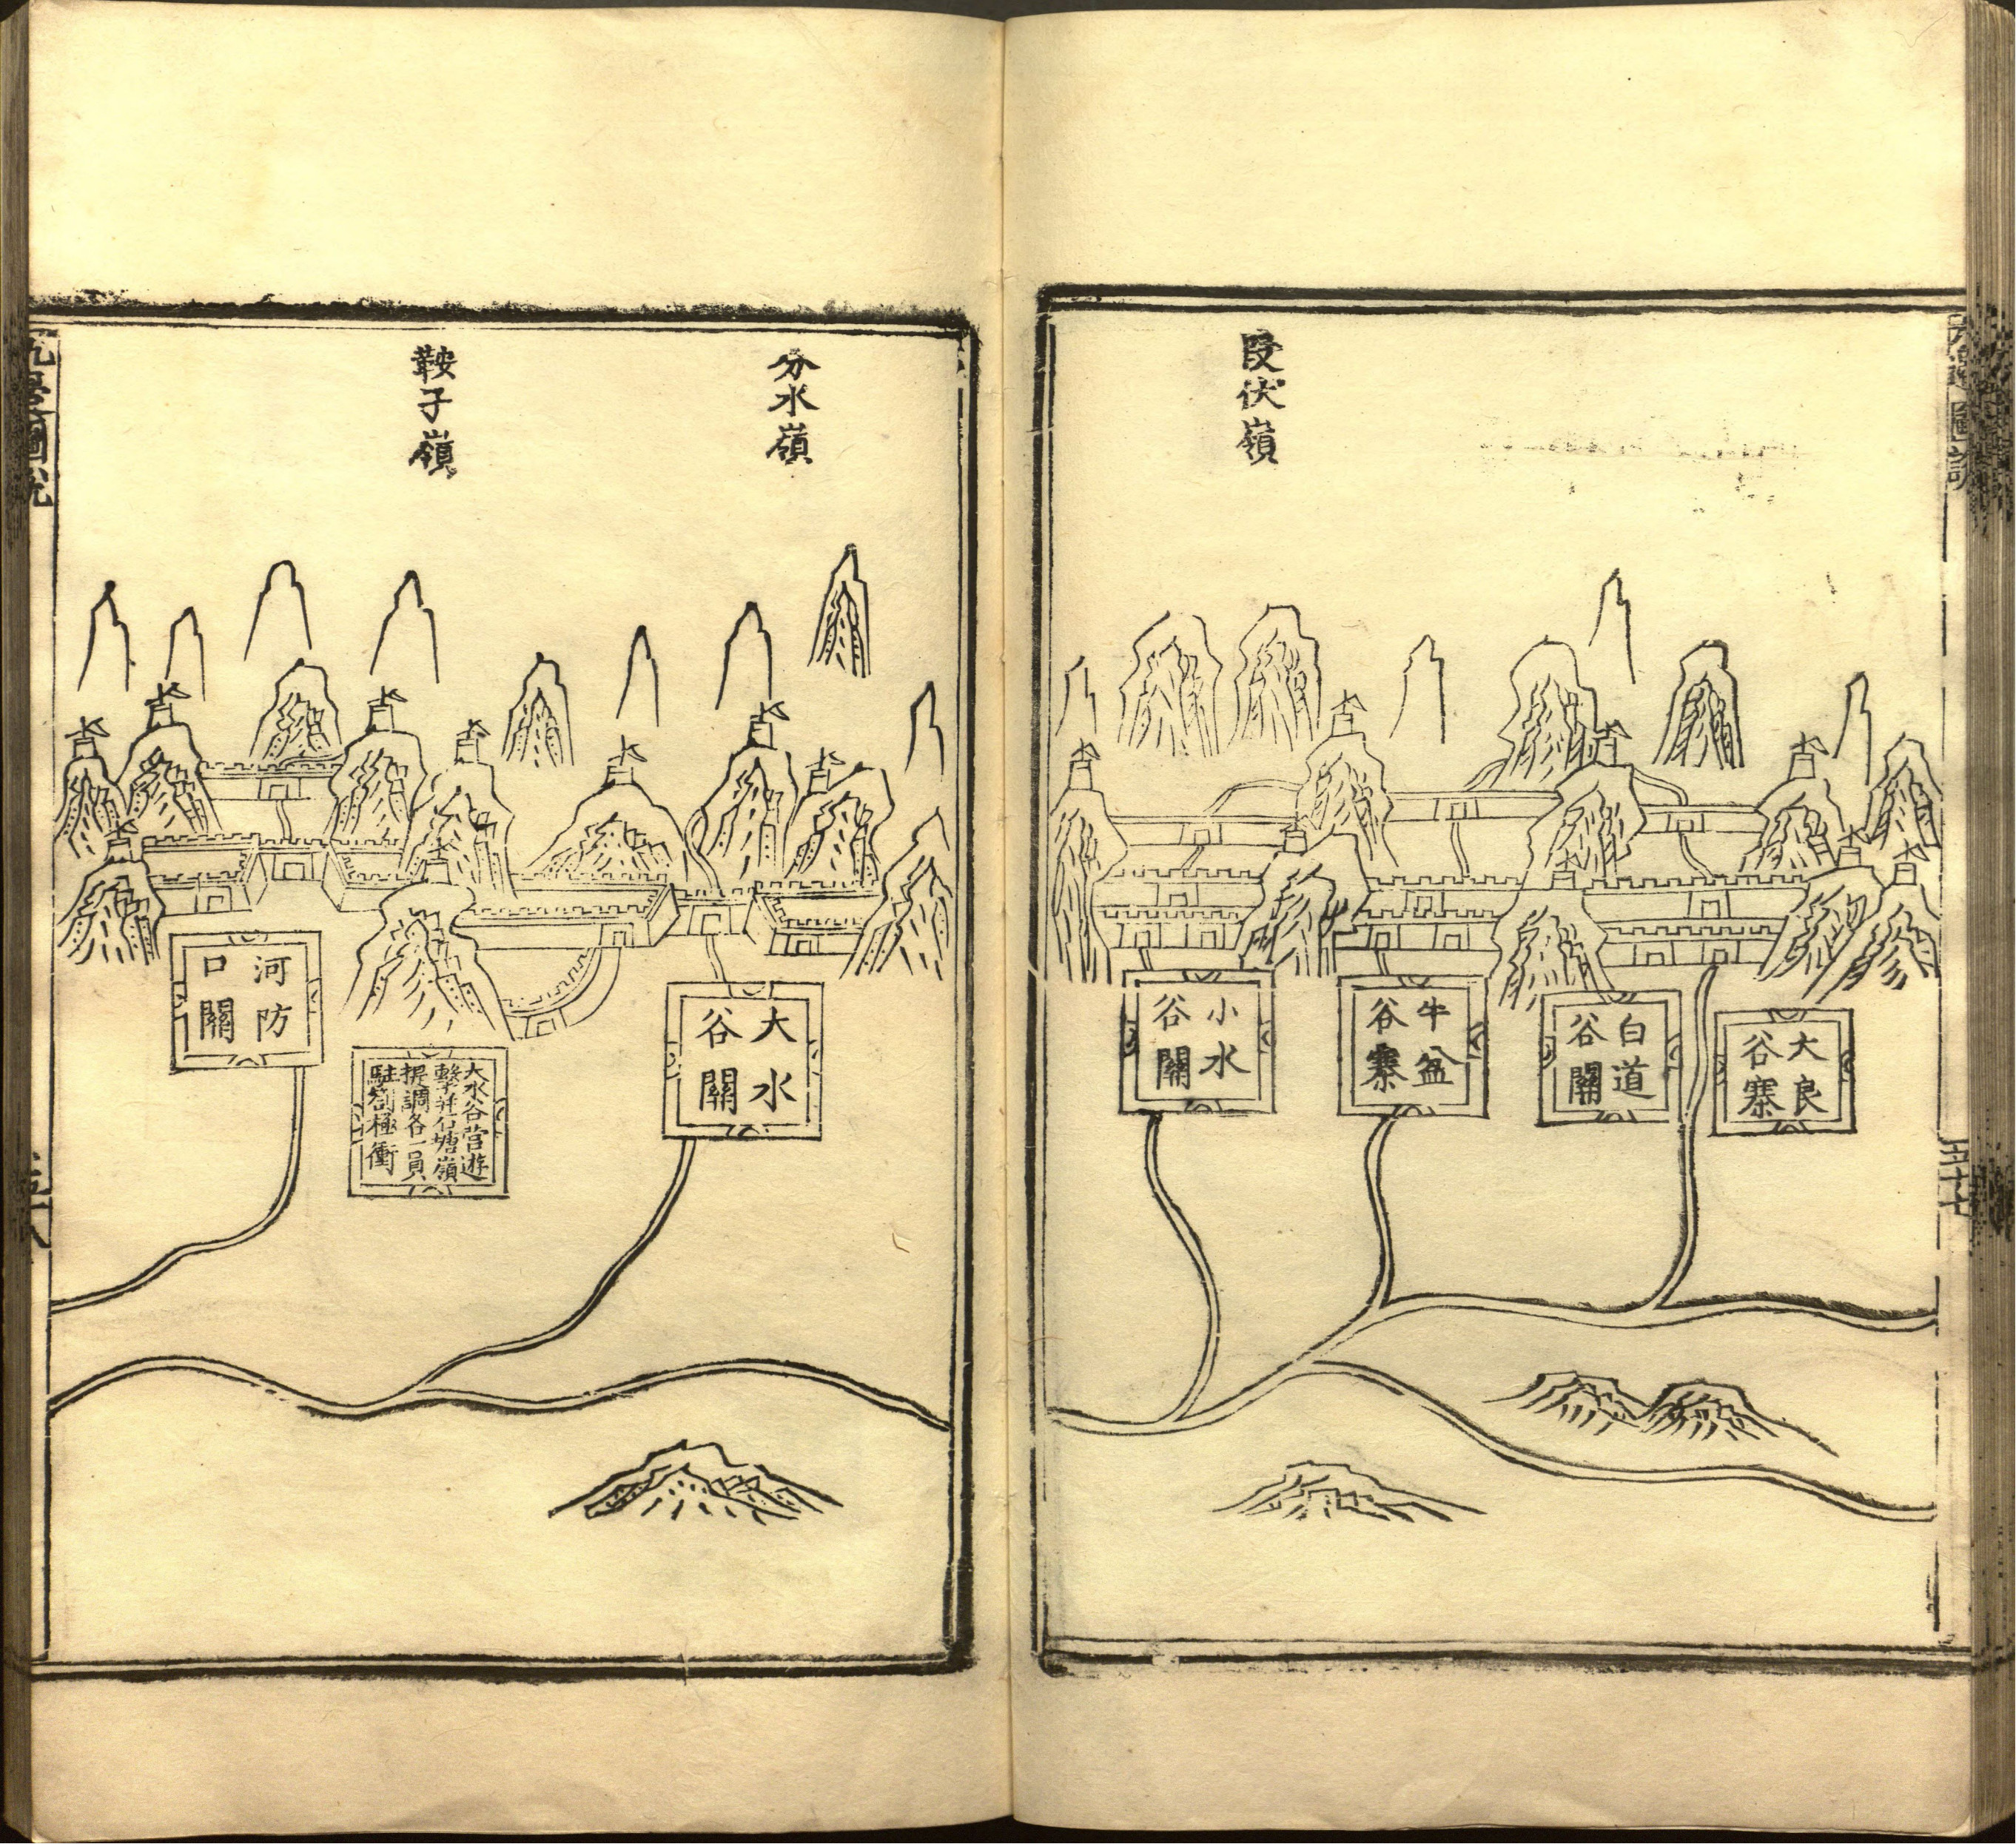 九邊圖說
五十七
叚伏嶺
大良
谷寨
白道
谷關
牛盆
谷寨
小水
谷關
分水嶺
鞍子嶺
大水
谷關
大水谷营遊
擊并石塘嶺
提調各一員
駐劄極衝
河防
口關
九邊圖說